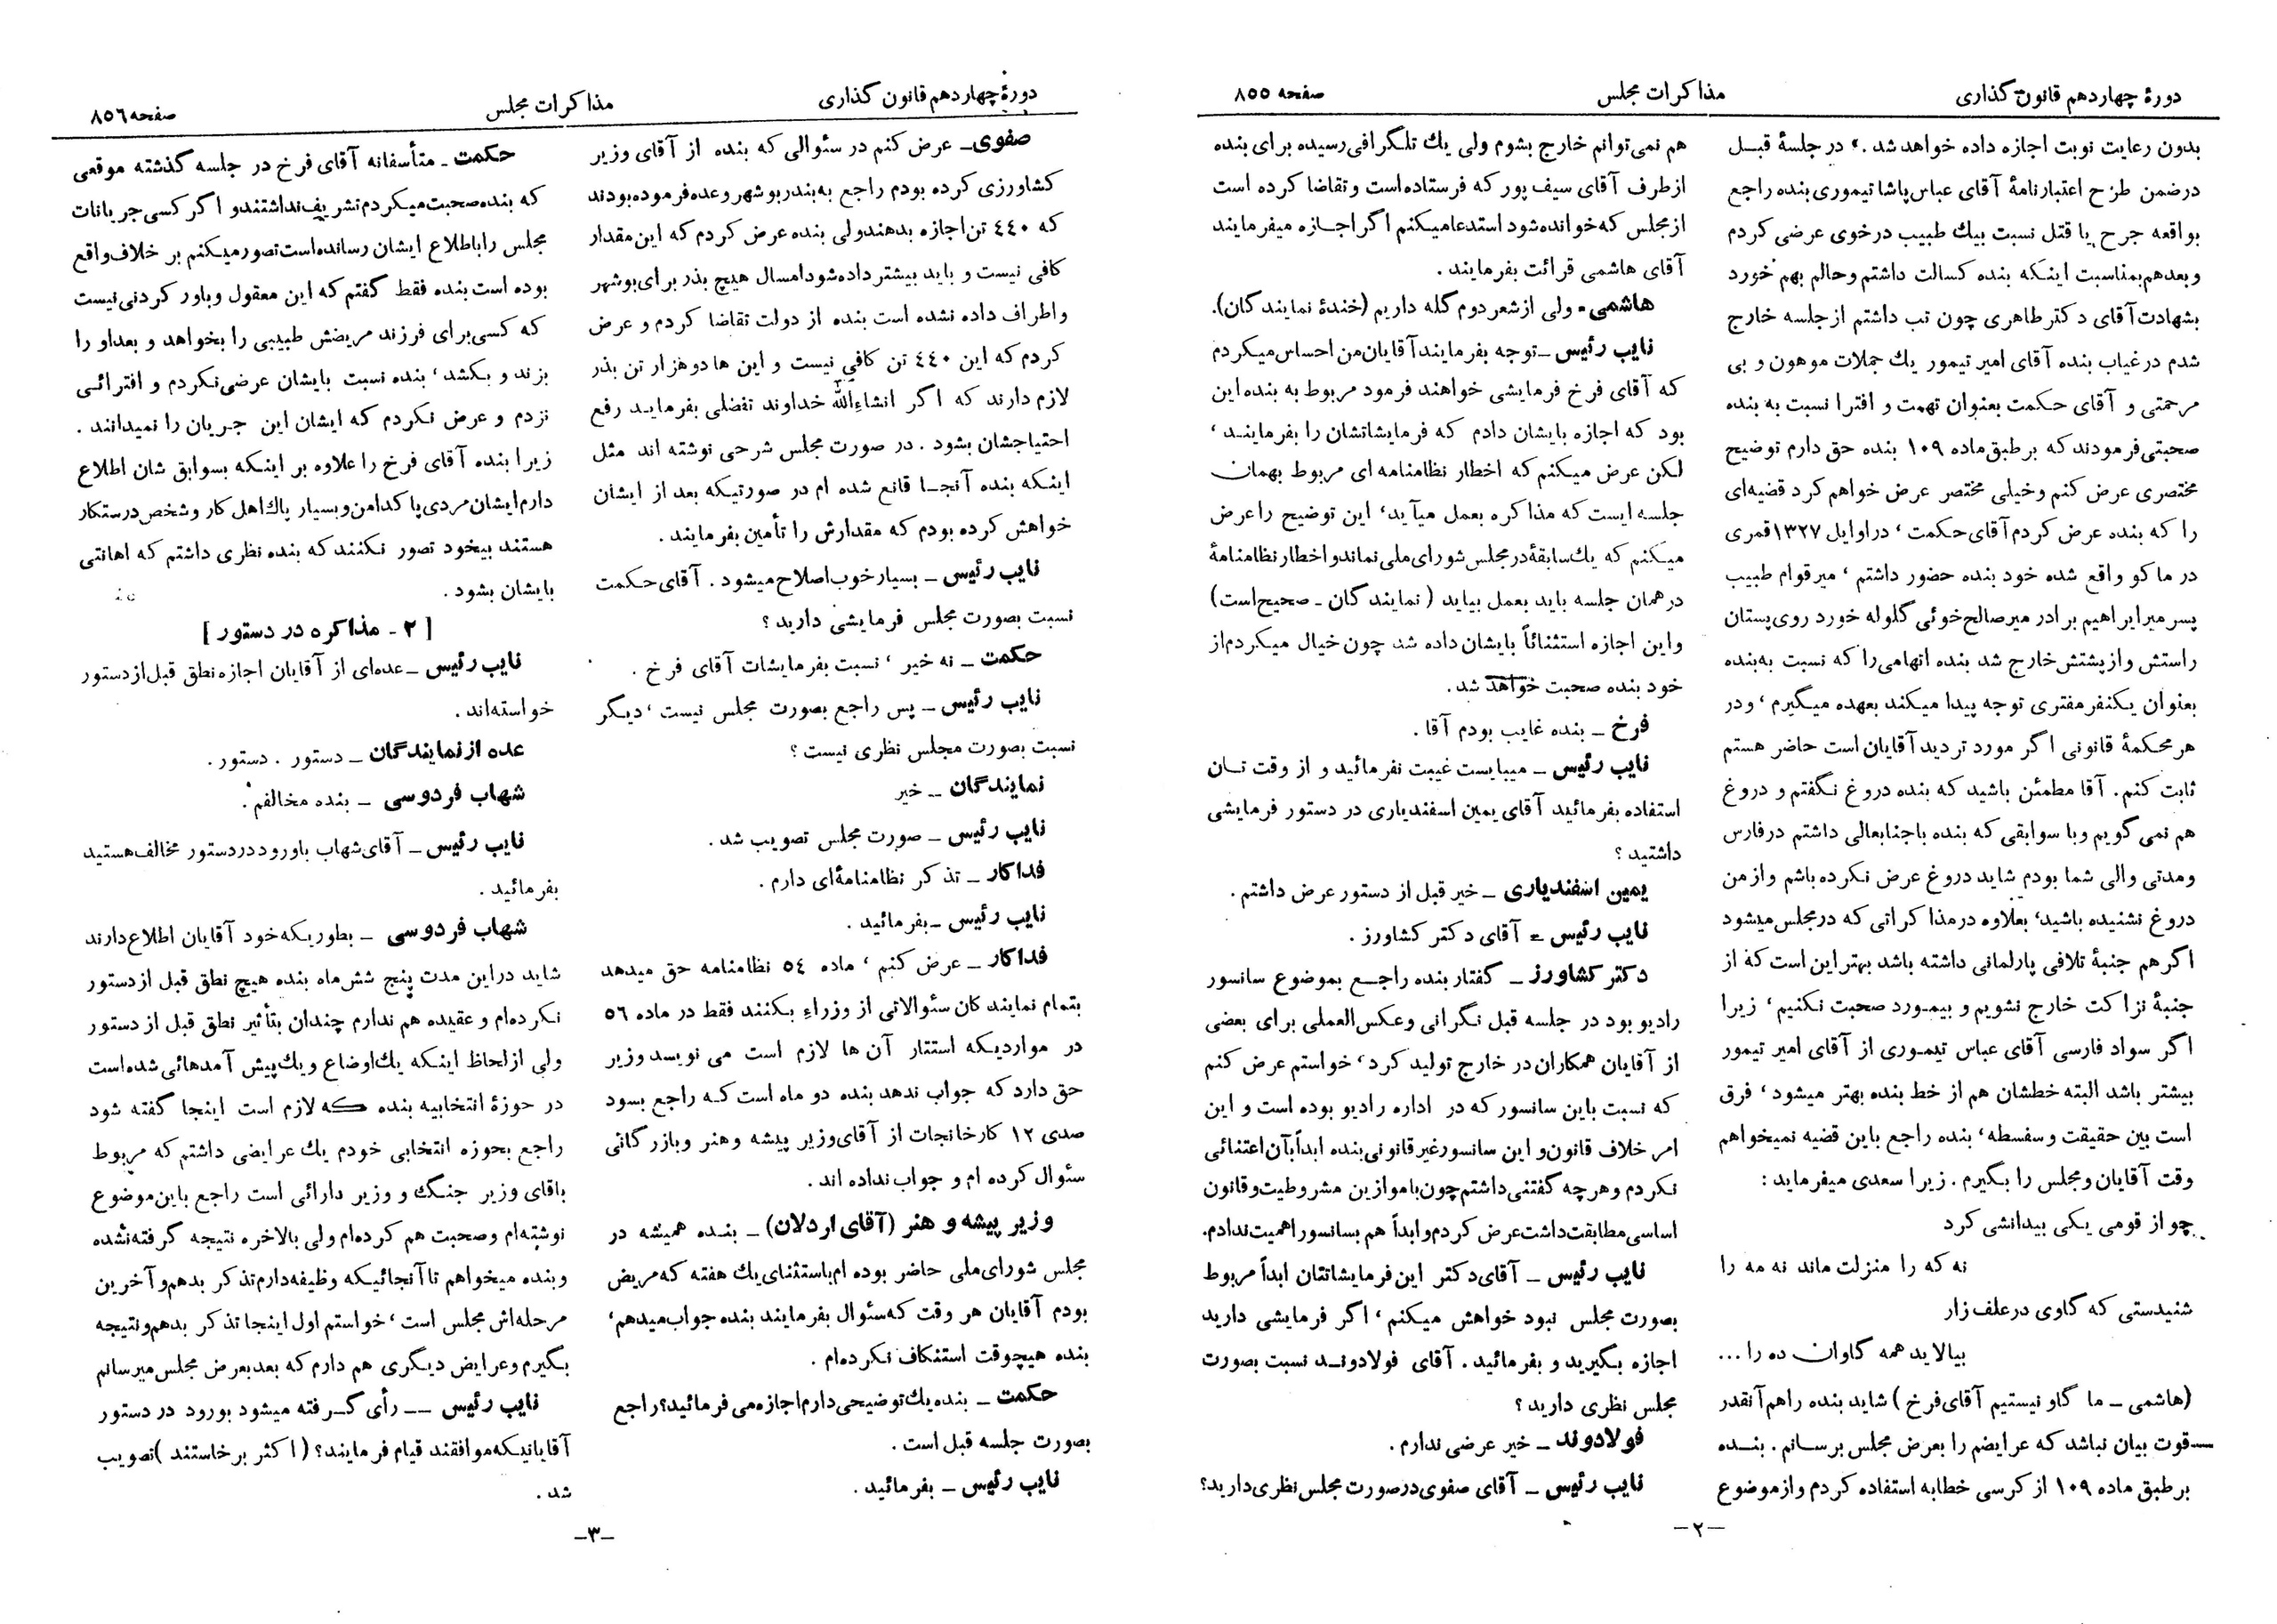 دورهٔ چهاردهم قانون گذاری
مذاکرات مجلس
صفحه ۸۵۵
بدون رعایت نوبت اجازه داده خواهد شد .» در جلسهٔ قبل
درضمن طرح اعتبارنامهٔ آقای عباس پاشا تیموری بنده راجع
بواقعه جرح یا قتل نسبت بیك طبیب درخوی عرضی کردم
وبعدهم بمناسبت اینکه بنده کسالت داشتم وحالم بهم خورد
بشهادت آقای دکتر طاهری چون تب داشتم ازجلسه خارج
شدم درغیاب بنده آقای امیر تیمور یك جملات موهون و بی
مرحمتی و آقای حکمت بعنوان تهمت و افترا نسبت به بنده
صحبتی فرمودند که برطبق ماده ۱۰۹ بنده حق دارم توضیح
مختصری عرض کنم وخیلی مختصر عرض خواهم کرد قضیه‌ای
را که بنده عرض کردم آقای حکمت ، دراوایل ۱۳۲۷ قمری
در ماکو واقع شده خود بنده حضور داشتم ، میرقوام طبیب
پسر میرابراهیم برادر میرصالح خوئی گلوله خورد روی پستان
راستش وازپشتش خارج شد بنده اتهامی را که نسبت به‌بنده
بعنوان یکنفر مفتری توجه پیدا میکند بعهده میگیرم ، ودر
هر محکمهٔ قانونی اگر مورد تردید آقایان است حاضر هستم
ثابت کنم . آقا مطمئن باشید که بنده دروغ نگفتم و دروغ
هم نمی گویم وبا سوابقی که بنده باجنابعالی داشتم درفارس
ومدتی والی شما بودم شاید دروغ عرض نکرده باشم وازمن
دروغ نشنیده باشید، بعلاوه درمذاکراتی که درمجلس میشود
اگر هم جنبهٔ تلافی پارلمانی داشته باشد بهتر این است که از
جنبهٔ نزاکت خارج نشویم و بیمورد صحبت نکنیم ، زیرا
اگر سواد فارسی آقای عباس تیموری از آقای امیر تیمور
بیشتر باشد البته خطشان هم از خط بنده بهتر میشود ، فرق
است بین حقیقت وسفسطه ، بنده راجع باین قضیه نمیخواهم
وقت آقایان ومجلس را بگیرم . زیرا سعدی میفرماید :
چو از قومی یکی بیدانشی کرد
نه که را منزلت ماند نه مه را
شنیدستی که گاوی درعلف زار
بیالاید همه گاوان ده را ...
(هاشمی ـ ما گاو نیستیم آقای فرخ ) شاید بنده راهم آنقدر
قوت بیان نباشد که عرایضم را بعرض مجلس برسانم . بنده
برطبق ماده ۱۰۹ از کرسی خطابه استفاده کردم وازموضوع
هم نمی‌توانم خارج بشوم ولی یك تلگرافی رسیده برای بنده
ازطرف آقای سیف پور که فرستاده است وتقاضا کرده است
ازمجلس که خوانده شود استدعا میکنم اگر اجازه میفرمایند
آقای هاشمی قرائت بفرمایند .
هاشمی ـ ولی ازشعر دوم گله داریم (خندهٔ نمایندگان).
نایب رئیس ـ توجه بفرمایند آقایان من احساس میکردم
که آقای فرخ فرمایشی خواهند فرمود مربوط به بنده این
بود که اجازه بایشان دادم که فرمایشاتشان را بفرمایند ،
لکن عرض میکنم که اخطار نظامنامه ای مربوط بهمان
جلسه ایست که مذاکره بعمل میآید ، این توضیح را عرض
میکنم که یك سابقهٔ درمجلس شورای ملی نماند و اخطار نظامنامهٔ
درهمان جلسه باید بعمل بیاید ( نمایندگان ـ صحیح است)
واین اجازه استثنائاً بایشان داده شد چون خیال میکردم از
خود بنده صحبت خواهد شد .
فرخ ـ بنده غایب بودم آقا .
نایب رئیس ـ میبایست غیبت نفرمائید و از وقت تان
استفاده بفرمائید آقای یمین اسفندیاری در دستور فرمایشی
داشتید ؟
یمین اسفندیاری ـ خیر قبل از دستور عرض داشتم .
نایب رئیس ـ آقای دکتر کشاورز .
دکتر کشاورز ـ گفتار بنده راجع بموضوع سانسور
رادیو بود در جلسه قبل نگرانی وعکس‌العملی برای بعضی
از آقایان همکاران در خارج تولید کرد ، خواستم عرض کنم
که نسبت باین سانسور که در اداره رادیو بوده است و این
امر خلاف قانون و این سانسور غیرقانونی بنده ابداً بآن اعتنائی
نکردم وهرچه گفتنی داشتم چون با موازین مشروطیت و قانون
اساسی مطابقت داشت عرض کردم و ابداً هم بسانسور اهمیت ندادم.
نایب رئیس ـ آقای دکتر این فرمایشاتتان ابداً مربوط
بصورت مجلس نبود خواهش میکنم ، اگر فرمایشی دارید
اجازه بگیرید و بفرمائید . آقای فولادوند نسبت بصورت
مجلس نظری دارید ؟
فولادوند ـ خیر عرضی ندارم .
نایب رئیس ـ آقای صفوی درصورت مجلس نظری دارید؟
ـ۲ـ
دورهٔ چهاردهم قانون گذاری
مذاکرات مجلس
صفحه ۸۵٦
صفوی ـ عرض کنم در سئوالی که بنده از آقای وزیر
کشاورزی کرده بودم راجع به‌بندر بوشهر وعده فرموده بودند
که ٤٤۰ تن اجازه بدهند ولی بنده عرض کردم که این مقدار
کافی نیست و باید بیشتر داده شود امسال هیچ بذر برای بوشهر
واطراف داده نشده است بنده از دولت تقاضا کردم و عرض
کردم که این ٤٤۰ تن کافی نیست و این ها دوهزار تن بذر
لازم دارند که اگر انشاءالله خداوند تفضلی بفرماید رفع
احتیاجشان بشود . در صورت مجلس شرحی نوشته اند مثل
اینکه بنده آنجا قانع شده ام در صورتیکه بعد از ایشان
خواهش کرده بودم که مقدارش را تأمین بفرمایند .
نایب رئیس ـ بسیار خوب اصلاح میشود . آقای حکمت
نسبت بصورت مجلس فرمایشی دارید ؟
حکمت ـ نه خیر ، نسبت بفرمایشات آقای فرخ .
نایب رئیس ـ پس راجع بصورت مجلس نیست ، دیگر
نسبت بصورت مجلس نظری نیست ؟
نمایندگان ـ خیر
نایب رئیس ـ صورت مجلس تصویب شد .
فداکار ـ تذکر نظامنامه‌ٔای دارم .
نایب رئیس ـ بفرمائید .
فداکار ـ عرض کنم ، ماده ٥٤ نظامنامه حق میدهد
بتمام نمایندگان سئوالاتی از وزراء بکنند فقط در ماده ٥٦
در مواردیکه استتار آن ها لازم است می نویسد وزیر
حق دارد که جواب ندهد بنده دو ماه است که راجع بسود
صدی ۱۲ کارخانجات از آقای وزیر پیشه وهنر وبازرگانی
سئوال کرده ام و جواب نداده اند .
وزیر پیشه و هنر (آقای اردلان) ـ بنده همیشه در
مجلس شورای ملی حاضر بوده ام باستثنای یك هفته که مریض
بودم آقایان هر وقت که سئوال بفرمایند بنده جواب میدهم ،
بنده هیچوقت استنکاف نکرده‌ام .
حکمت ـ بنده یك توضیحی دارم اجازه می فرمائید؟ راجع
بصورت جلسه قبل است .
نایب رئیس ـ بفرمائید .
حکمت ـ متأسفانه آقای فرخ در جلسه گذشته موقعی
که بنده صحبت میکردم تشریف نداشتند و اگر کسی جریانات
مجلس را باطلاع ایشان رسانده است تصور میکنم بر خلاف واقع
بوده است بنده فقط گفتم که این معقول وباور کردنی نیست
که کسی برای فرزند مریضش طبیبی را بخواهد و بعد او را
بزند و بکشد ، بنده نسبت بایشان عرضی نکردم و افترائی
نزدم و عرض نکردم که ایشان این جریان را نمیدانند .
زیرا بنده آقای فرخ را علاوه بر اینکه بسوابق شان اطلاع
دارم ایشان مردی پاکدامن و بسیار پاك اهل کار وشخص درستکار
هستند بیخود تصور نکنند که بنده نظری داشتم که اهانتی
بایشان بشود .
[ ۲ - مذاکره در دستور ]
نایب رئیس ـ عده‌ای از آقایان اجازه نطق قبل از دستور
خواسته‌اند .
عده از نمایندگان ـ دستور . دستور .
شهاب فردوسی ـ بنده مخالفم .
نایب رئیس ـ آقای شهاب باورود دردستور مخالف هستید
بفرمائید .
شهاب فردوسی ـ بطوریکه خود آقایان اطلاع دارند
شاید دراین مدت پنج شش ماه بنده هیچ نطق قبل ازدستور
نکرده‌ام و عقیده هم ندارم چندان بتأثیر نطق قبل از دستور
ولی ازلحاظ اینکه یك اوضاع ویك پیش آمدهائی شده است
در حوزهٔ انتخابیه بنده که لازم است اینجا گفته شود
راجع بحوزه انتخابی خودم یك عرایضی داشتم که مربوط
باقای وزیر جنگ و وزیر دارائی است راجع باین موضوع
نوشته‌ام وصحبت هم کرده‌ام ولی بالاخره نتیجه گرفته نشده
وبنده میخواهم تا آنجائیکه وظیفه دارم تذکر بدهم و آخرین
مرحله‌اش مجلس است ، خواستم اول اینجا تذکر بدهم و نتیجه
بگیرم وعرایض دیگری هم دارم که بعد بعرض مجلس میرسانم
نایب رئیس ــ رأی گرفته میشود بورود در دستور
آقایانیکه موافقند قیام فرمایند؟ (اکثر برخاستند )تصویب
شد .
ـ۳ـ